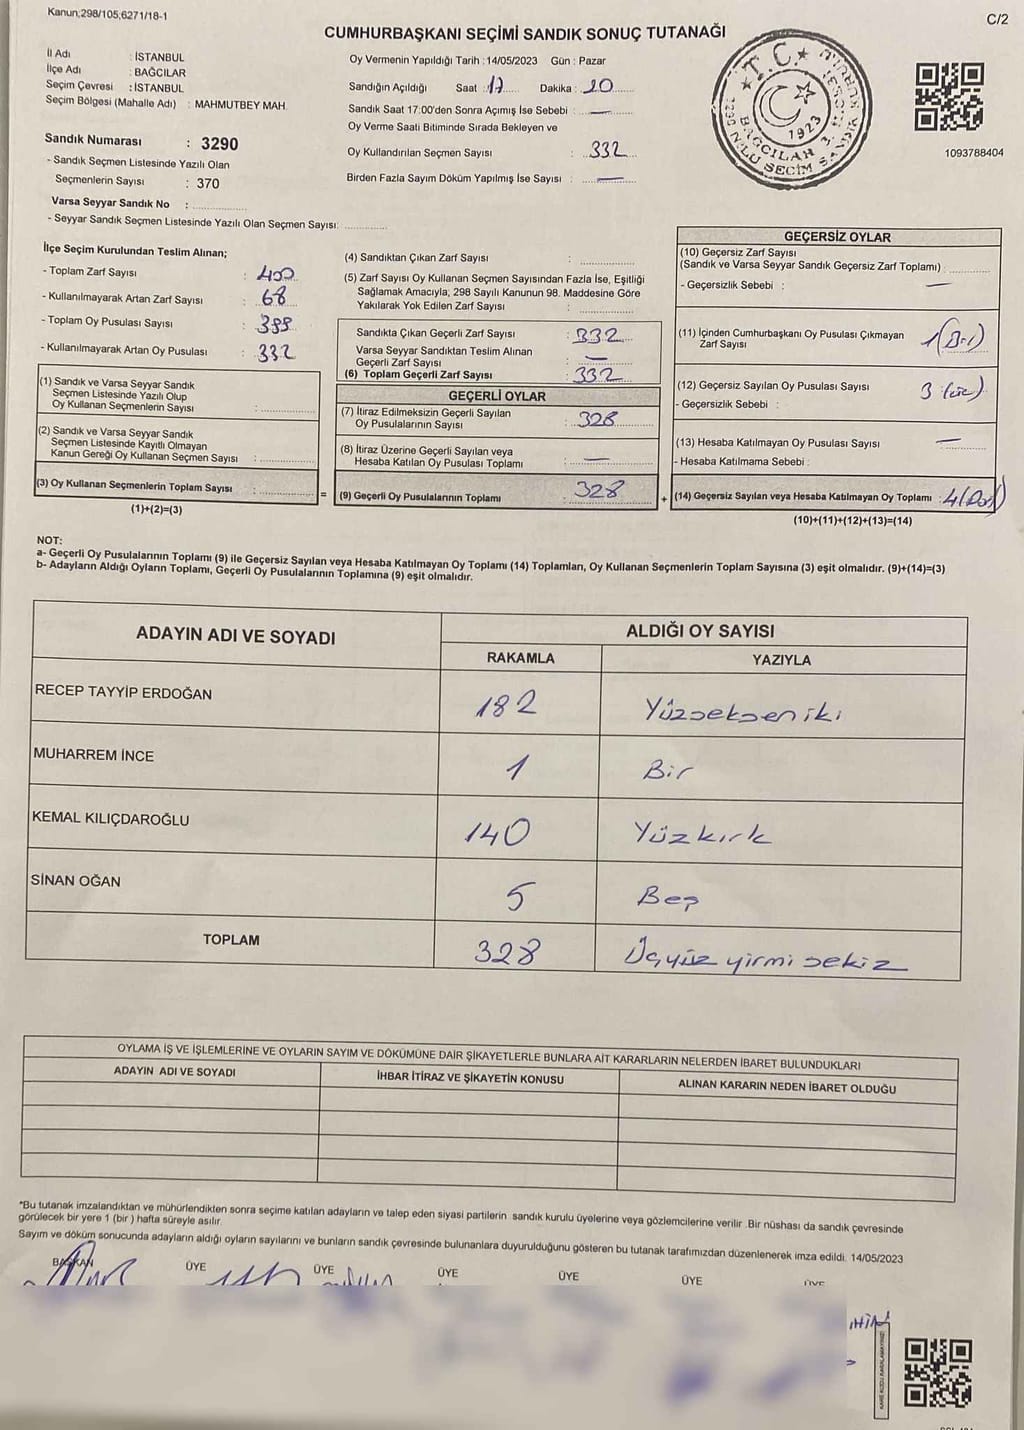 Kanun;298/105,6271/18-1
C/2
CUMHURBAŞKANI SEÇİMİ SANDIK SONUÇ TUTANAĞI
İl Adı : İSTANBUL
İlçe Adı : BAĞCILAR
Seçim Çevresi : İSTANBUL
Seçim Bölgesi (Mahalle Adı) : MAHMUTBEY MAH.
Sandık Numarası : 3290
- Sandık Seçmen Listesinde Yazılı Olan
Seçmenlerin Sayısı : 370
Varsa Seyyar Sandık No :
- Seyyar Sandık Seçmen Listesinde Yazılı Olan Seçmen Sayısı:
Oy Vermenin Yapıldığı Tarih : 14/05/2023 Gün : Pazar
Sandığın Açıldığı Saat : 17 Dakika : 20
Sandık Saat 17:00'den Sonra Açımış İse Sebebi : —
Oy Verme Saati Bitiminde Sırada Bekleyen ve
Oy Kullandırılan Seçmen Sayısı : 332
Birden Fazla Sayım Döküm Yapılmış İse Sayısı : —
T.C.
1923
BAĞCILAR 3.
1290 NOLU SEÇİM SANDIK KURULU
1093788404
İlçe Seçim Kurulundan Teslim Alınan;
- Toplam Zarf Sayısı : 400
- Kullanılmayarak Artan Zarf Sayısı : 68
- Toplam Oy Pusulası Sayısı : 399
- Kullanılmayarak Artan Oy Pusulası : 332
(1) Sandık ve Varsa Seyyar Sandık
Seçmen Listesinde Yazılı Olup
Oy Kullanan Seçmenlerin Sayısı :
(2) Sandık ve Varsa Seyyar Sandık
Seçmen Listesinde Kayıtlı Olmayan
Kanun Gereği Oy Kullanan Seçmen Sayısı :
(3) Oy Kullanan Seçmenlerin Toplam Sayısı :
(1)+(2)=(3)
=
(4) Sandıktan Çıkan Zarf Sayısı :
(5) Zarf Sayısı Oy Kullanan Seçmen Sayısından Fazla İse, Eşitliği
Sağlamak Amacıyla; 298 Sayılı Kanunun 98. Maddesine Göre
Yakılarak Yok Edilen Zarf Sayısı :
Sandıkta Çıkan Geçerli Zarf Sayısı : 332
Varsa Seyyar Sandıktan Teslim Alınan
Geçerli Zarf Sayısı : —
(6) Toplam Geçerli Zarf Sayısı : 332
GEÇERLİ OYLAR
(7) İtiraz Edilmeksizin Geçerli Sayılan
Oy Pusulalarının Sayısı : 328
(8) İtiraz Üzerine Geçerli Sayılan veya
Hesaba Katılan Oy Pusulası Toplamı : —
(9) Geçerli Oy Pusulalarının Toplamı : 328
+
GEÇERSİZ OYLAR
(10) Geçersiz Zarf Sayısı
(Sandık ve Varsa Seyyar Sandık Geçersiz Zarf Toplamı) :
- Geçersizlik Sebebi : —
(11) İçinden Cumhurbaşkanı Oy Pusulası Çıkmayan
Zarf Sayısı 1 (Bir)
(12) Geçersiz Sayılan Oy Pusulası Sayısı 3 (üç)
- Geçersizlik Sebebi :
(13) Hesaba Katılmayan Oy Pusulası Sayısı —
- Hesaba Katılmama Sebebi :
(14) Geçersiz Sayılan veya Hesaba Katılmayan Oy Toplamı : 4 (Dört)
(10)+(11)+(12)+(13)=(14)
NOT:
a- Geçerli Oy Pusulalarının Toplamı (9) ile Geçersiz Sayılan veya Hesaba Katılmayan Oy Toplamı (14) Toplamları, Oy Kullanan Seçmenlerin Toplam Sayısına (3) eşit olmalıdır. (9)+(14)=(3)
b- Adayların Aldığı Oyların Toplamı, Geçerli Oy Pusulalarının Toplamına (9) eşit olmalıdır.
ADAYIN ADI VE SOYADI
ALDIĞI OY SAYISI
RAKAMLA YAZIYLA
RECEP TAYYİP ERDOĞAN 182 Yüzseksen iki
MUHARREM İNCE 1 Bir
KEMAL KILIÇDAROĞLU 140 Yüzkırk
SİNAN OĞAN 5 Beş
TOPLAM 328 Üçyüz yirmi sekiz
OYLAMA İŞ VE İŞLEMLERİNE VE OYLARIN SAYIM VE DÖKÜMÜNE DAİR ŞİKAYETLERLE BUNLARA AİT KARARLARIN NELERDEN İBARET BULUNDUKLARI
ADAYIN ADI VE SOYADI İHBAR İTİRAZ VE ŞİKAYETİN KONUSU ALINAN KARARIN NEDEN İBARET OLDUĞU
*Bu tutanak imzalandıktan ve mühürlendikten sonra seçime katılan adayların ve talep eden siyasi partilerin sandık kurulu üyelerine veya gözlemcilerine verilir .Bir nüshası da sandık çevresinde
görülecek bir yere 1 (bir ) hafta süreyle asılır.
Sayım ve döküm sonucunda adayların aldığı oyların sayılarını ve bunların sandık çevresinde bulunanlara duyurulduğunu gösteren bu tutanak tarafımızdan düzenlenerek imza edildi. 14/05/2023
BAŞKAN ÜYE ÜYE ÜYE ÜYE ÜYE ÜYE